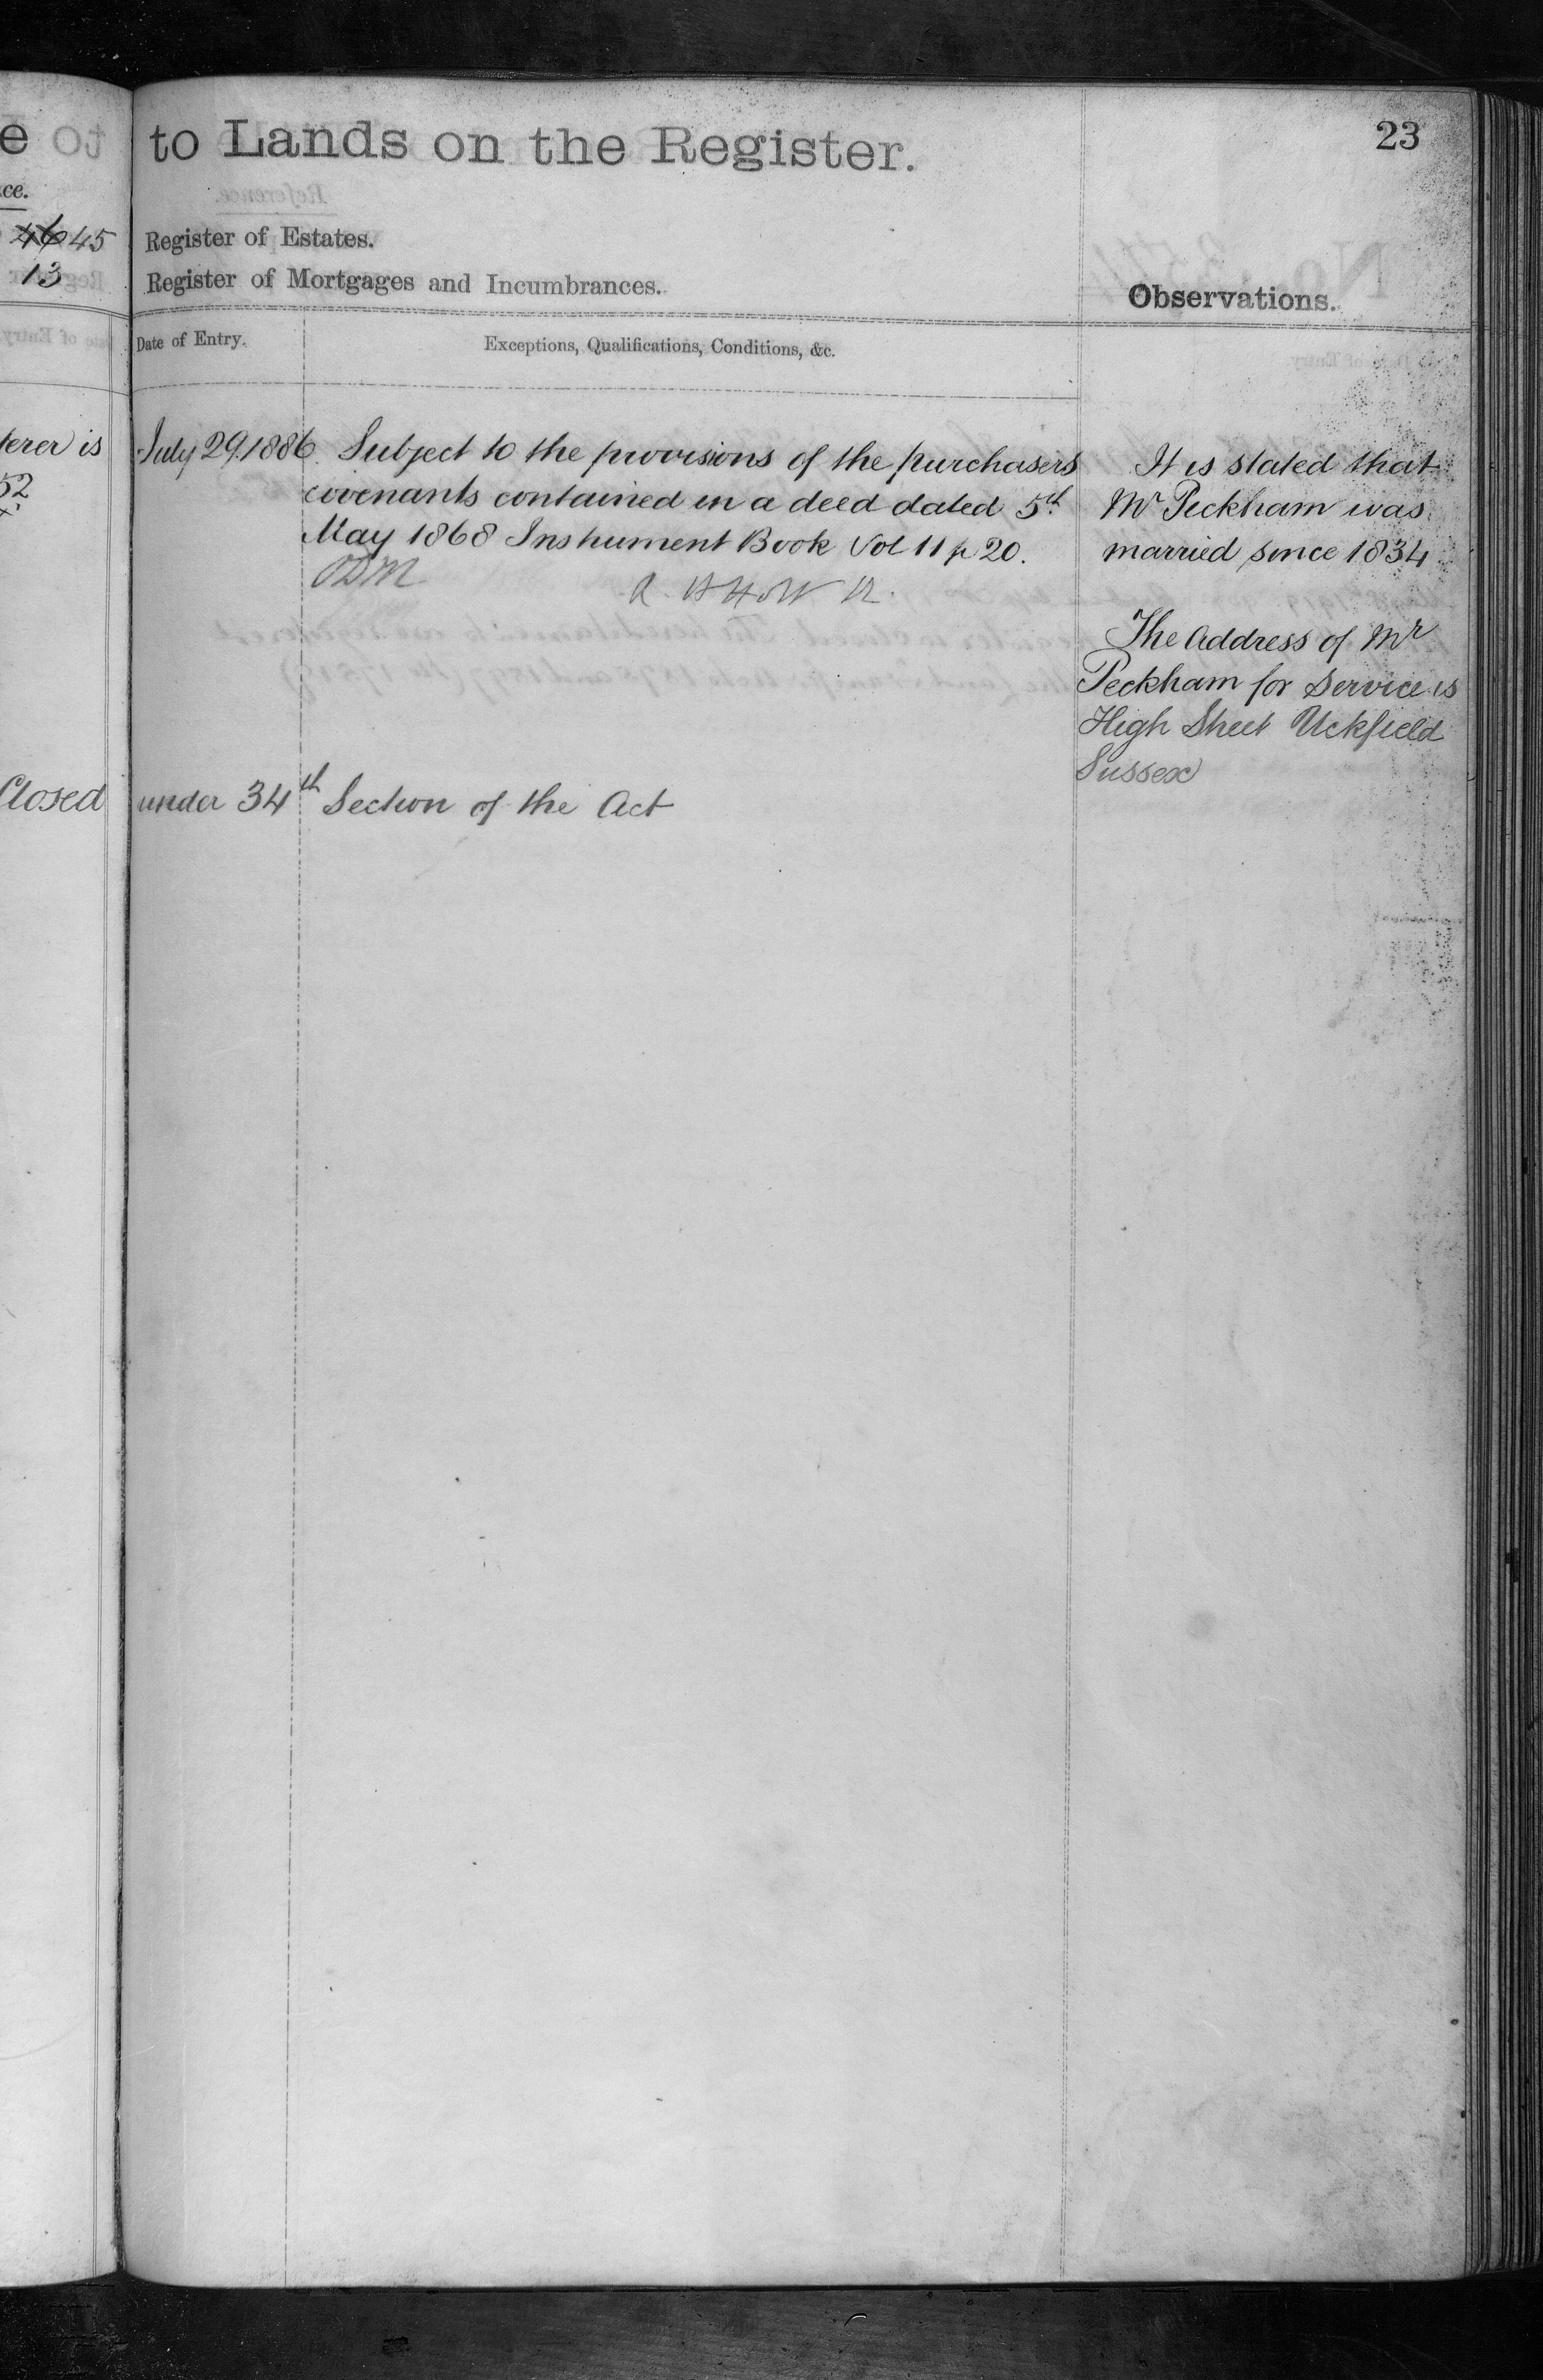 e to Lands on the Register. 23
ce.
46 45 Register of Estates.
13 Register of Mortgages and Incumbrances.
Observations.
Date of Entry. Exceptions, Qualifications, Conditions, &c.
terer is
52
July 29. 1886. Subject to the provisions of the purchasers
covenants contained in a deed dated 5th
May 1868 Instrument Book Vol 11 p 20.
ODM
It is stated that
Mr Peckham was
married since 1834
The Address of Mr
Peckham for Service is
High Street Uckfield
Sussex
Closed under 34th Section of the Act